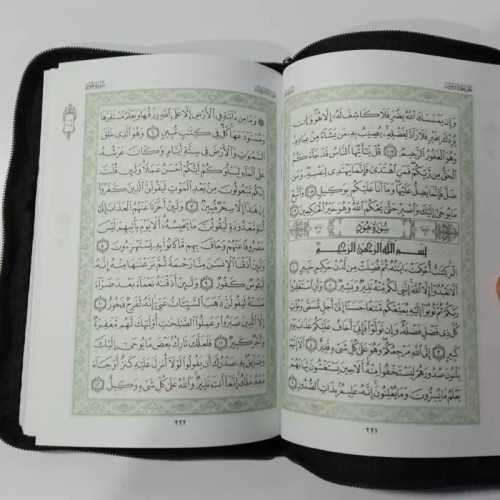 وَإِن يَمْسَسْكَ ٱللَّهُ بِضُرٍّ فَلَا كَاشِفَ لَهُۥٓ إِلَّا هُوَ وَإِن
يُرِدْكَ بِخَيْرٍ فَلَا رَآدَّ لِفَضْلِهِۦ يُصِيبُ بِهِۦ مَن يَشَآءُ مِنْ عِبَادِهِۦ
وَهُوَ ٱلْغَفُورُ ٱلرَّحِيمُ ١٠٧ قُلْ يَٰٓأَيُّهَا ٱلنَّاسُ قَدْ جَآءَكُمُ
ٱلْحَقُّ مِن رَّبِّكُمْ فَمَنِ ٱهْتَدَىٰ فَإِنَّمَا يَهْتَدِى لِنَفْسِهِۦ وَمَن
ضَلَّ فَإِنَّمَا يَضِلُّ عَلَيْهَا وَمَآ أَنَا۠ عَلَيْكُم بِوَكِيلٍ ١٠٨ وَٱتَّبِعْ
مَا يُوحَىٰٓ إِلَيْكَ وَٱصْبِرْ حَتَّىٰ يَحْكُمَ ٱللَّهُ وَهُوَ خَيْرُ ٱلْحَٰكِمِينَ ١٠٩
سُورَةُ هُودٍ
بِسْمِ ٱللَّهِ ٱلرَّحْمَٰنِ ٱلرَّحِيمِ
الٓر كِتَٰبٌ أُحْكِمَتْ ءَايَٰتُهُۥ ثُمَّ فُصِّلَتْ مِن لَّدُنْ حَكِيمٍ خَبِيرٍ ١
أَلَّا تَعْبُدُوٓا۟ إِلَّا ٱللَّهَ إِنَّنِى لَكُم مِّنْهُ نَذِيرٌ وَبَشِيرٌ ٢ وَأَنِ ٱسْتَغْفِرُوا۟
رَبَّكُمْ ثُمَّ تُوبُوٓا۟ إِلَيْهِ يُمَتِّعْكُم مَّتَٰعًا حَسَنًا إِلَىٰٓ أَجَلٍ مُّسَمًّى وَيُؤْتِ
كُلَّ ذِى فَضْلٍ فَضْلَهُۥ وَإِن تَوَلَّوْا۟ فَإِنِّىٓ أَخَافُ عَلَيْكُمْ عَذَابَ يَوْمٍ
كَبِيرٍ ٣ إِلَى ٱللَّهِ مَرْجِعُكُمْ وَهُوَ عَلَىٰ كُلِّ شَىْءٍ قَدِيرٌ ٤ أَلَآ إِنَّهُمْ
يَثْنُونَ صُدُورَهُمْ لِيَسْتَخْفُوا۟ مِنْهُ أَلَا حِينَ يَسْتَغْشُونَ ثِيَابَهُمْ
يَعْلَمُ مَا يُسِرُّونَ وَمَا يُعْلِنُونَ إِنَّهُۥ عَلِيمٌۢ بِذَاتِ ٱلصُّدُورِ ٥
٢٢١
سُورَةُ هُودٍ
وَمَا مِن دَآبَّةٍ فِى ٱلْأَرْضِ إِلَّا عَلَى ٱللَّهِ رِزْقُهَا وَيَعْلَمُ مُسْتَقَرَّهَا
وَمُسْتَوْدَعَهَا كُلٌّ فِى كِتَٰبٍ مُّبِينٍ ٦ وَهُوَ ٱلَّذِى خَلَقَ
ٱلسَّمَٰوَٰتِ وَٱلْأَرْضَ فِى سِتَّةِ أَيَّامٍ وَكَانَ عَرْشُهُۥ
عَلَى ٱلْمَآءِ لِيَبْلُوَكُمْ أَيُّكُمْ أَحْسَنُ عَمَلًا وَلَئِن قُلْتَ
إِنَّكُم مَّبْعُوثُونَ مِنۢ بَعْدِ ٱلْمَوْتِ لَيَقُولَنَّ ٱلَّذِينَ كَفَرُوٓا۟
إِنْ هَٰذَآ إِلَّا سِحْرٌ مُّبِينٌ ٧ وَلَئِنْ أَخَّرْنَا عَنْهُمُ ٱلْعَذَابَ إِلَىٰٓ
أُمَّةٍ مَّعْدُودَةٍ لَّيَقُولُنَّ مَا يَحْبِسُهُۥٓ أَلَا يَوْمَ يَأْتِيهِمْ لَيْسَ
مَصْرُوفًا عَنْهُمْ وَحَاقَ بِهِم مَّا كَانُوا۟ بِهِۦ يَسْتَهْزِءُونَ ٨
وَلَئِنْ أَذَقْنَا ٱلْإِنسَٰنَ مِنَّا رَحْمَةً ثُمَّ نَزَعْنَٰهَا مِنْهُ إِنَّهُۥ
لَيَـُٔوسٌ كَفُورٌ ٩ وَلَئِنْ أَذَقْنَٰهُ نَعْمَآءَ بَعْدَ ضَرَّآءَ
مَسَّتْهُ لَيَقُولَنَّ ذَهَبَ ٱلسَّيِّـَٔاتُ عَنِّىٓ إِنَّهُۥ لَفَرِحٌ فَخُورٌ ١٠
إِلَّا ٱلَّذِينَ صَبَرُوا۟ وَعَمِلُوا۟ ٱلصَّٰلِحَٰتِ أُو۟لَٰٓئِكَ لَهُم مَّغْفِرَةٌ
وَأَجْرٌ كَبِيرٌ ١١ فَلَعَلَّكَ تَارِكٌۢ بَعْضَ مَا يُوحَىٰٓ إِلَيْكَ
وَضَآئِقٌۢ بِهِۦ صَدْرُكَ أَن يَقُولُوا۟ لَوْلَآ أُنزِلَ عَلَيْهِ كَنزٌ أَوْ جَآءَ
مَعَهُۥ مَلَكٌ إِنَّمَآ أَنتَ نَذِيرٌ وَٱللَّهُ عَلَىٰ كُلِّ شَىْءٍ وَكِيلٌ ١٢
٢٢٢